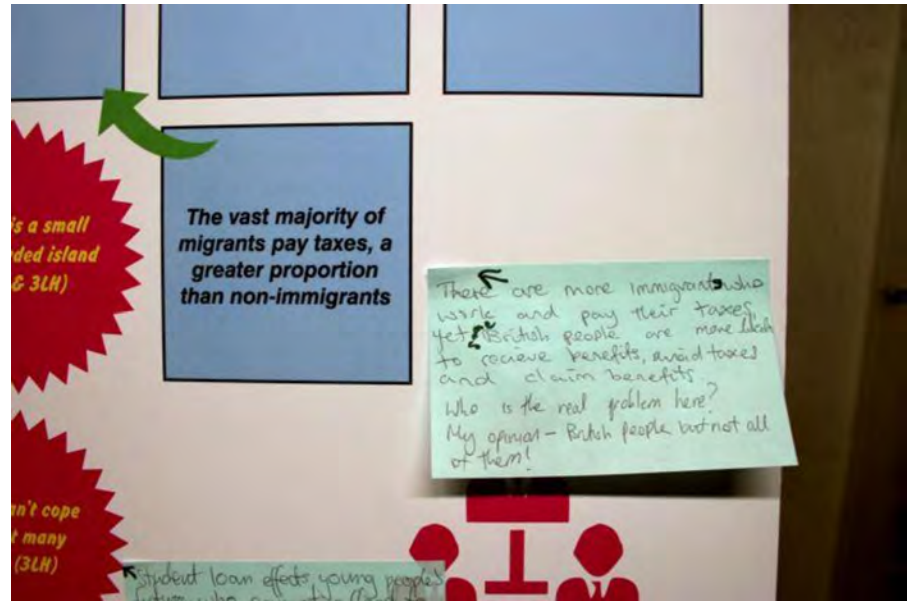 is a small
ded island
& 3LH)
The vast majority of
migrants pay taxes, a
greater proportion
than non-immigrants
There are more Immigrants who
work and pay their taxes,
yet British people are more likely
to recieve benefits, avoid taxes
and claim benefits.
Who is the real problem here?
My opinion - British people but not all
of them!
n't cope
t many
(3LH)
Student loan effects, young people's
future who